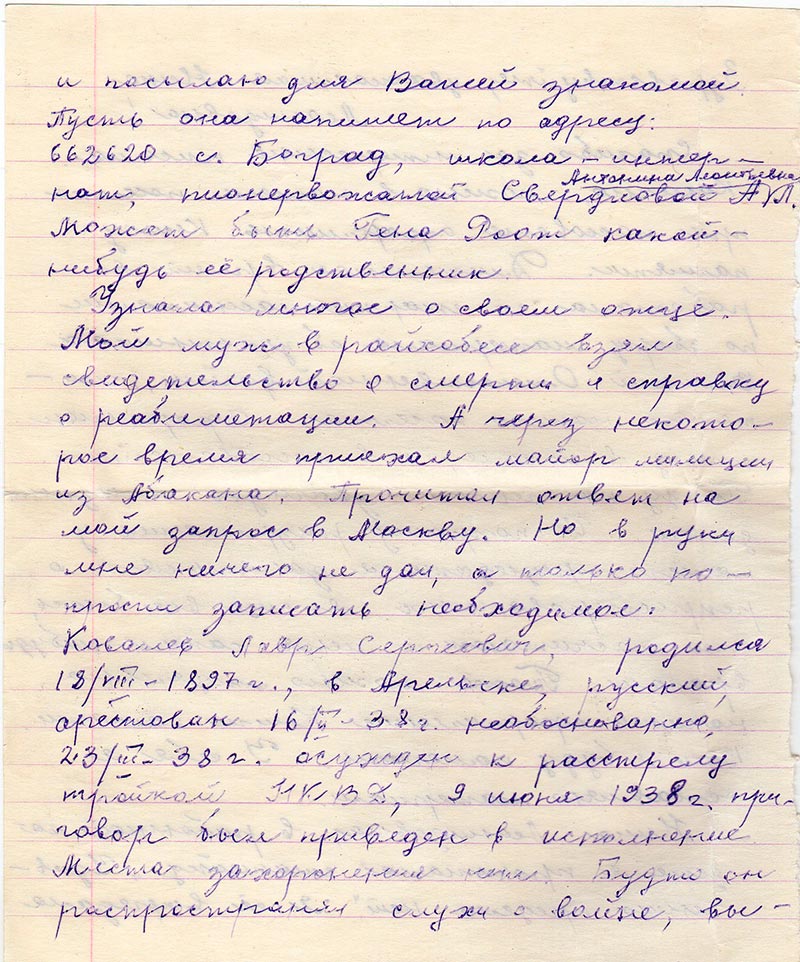 и посылаю для Вашей знакомой.
Пусть она напишет по адресу:
662620 с. Боград, школа-интер-
Антонина Леонтьевна
нат, пионервожатой Свердловой А Л.
Может быть Гена Роот какой
нибудь её родственник.
Узнала многое о своем отце.
Мой муж в райсобесе взял
свидетельство о смерти и справку
о реабилетации. А через некото-
рое время приехал майор милиции
из Абакана. Прочитал ответ на
мой запрос в Москву. Но в руки
мне ничего не дал, а только по-
просил записать необходимое:
Ковалев Лавр Сергеевич, родился
18/VIII-1897 г., в Арельске, русский,
арестован 16/II-38г. необоснованно,
23/III-38г. осужден к расстрелу
тройкой НКВД, 9 июня 1938г. при-
говор был приведен в исполнение.
Места захоронения нет. Будто он
распространял слухи о войне, вы-